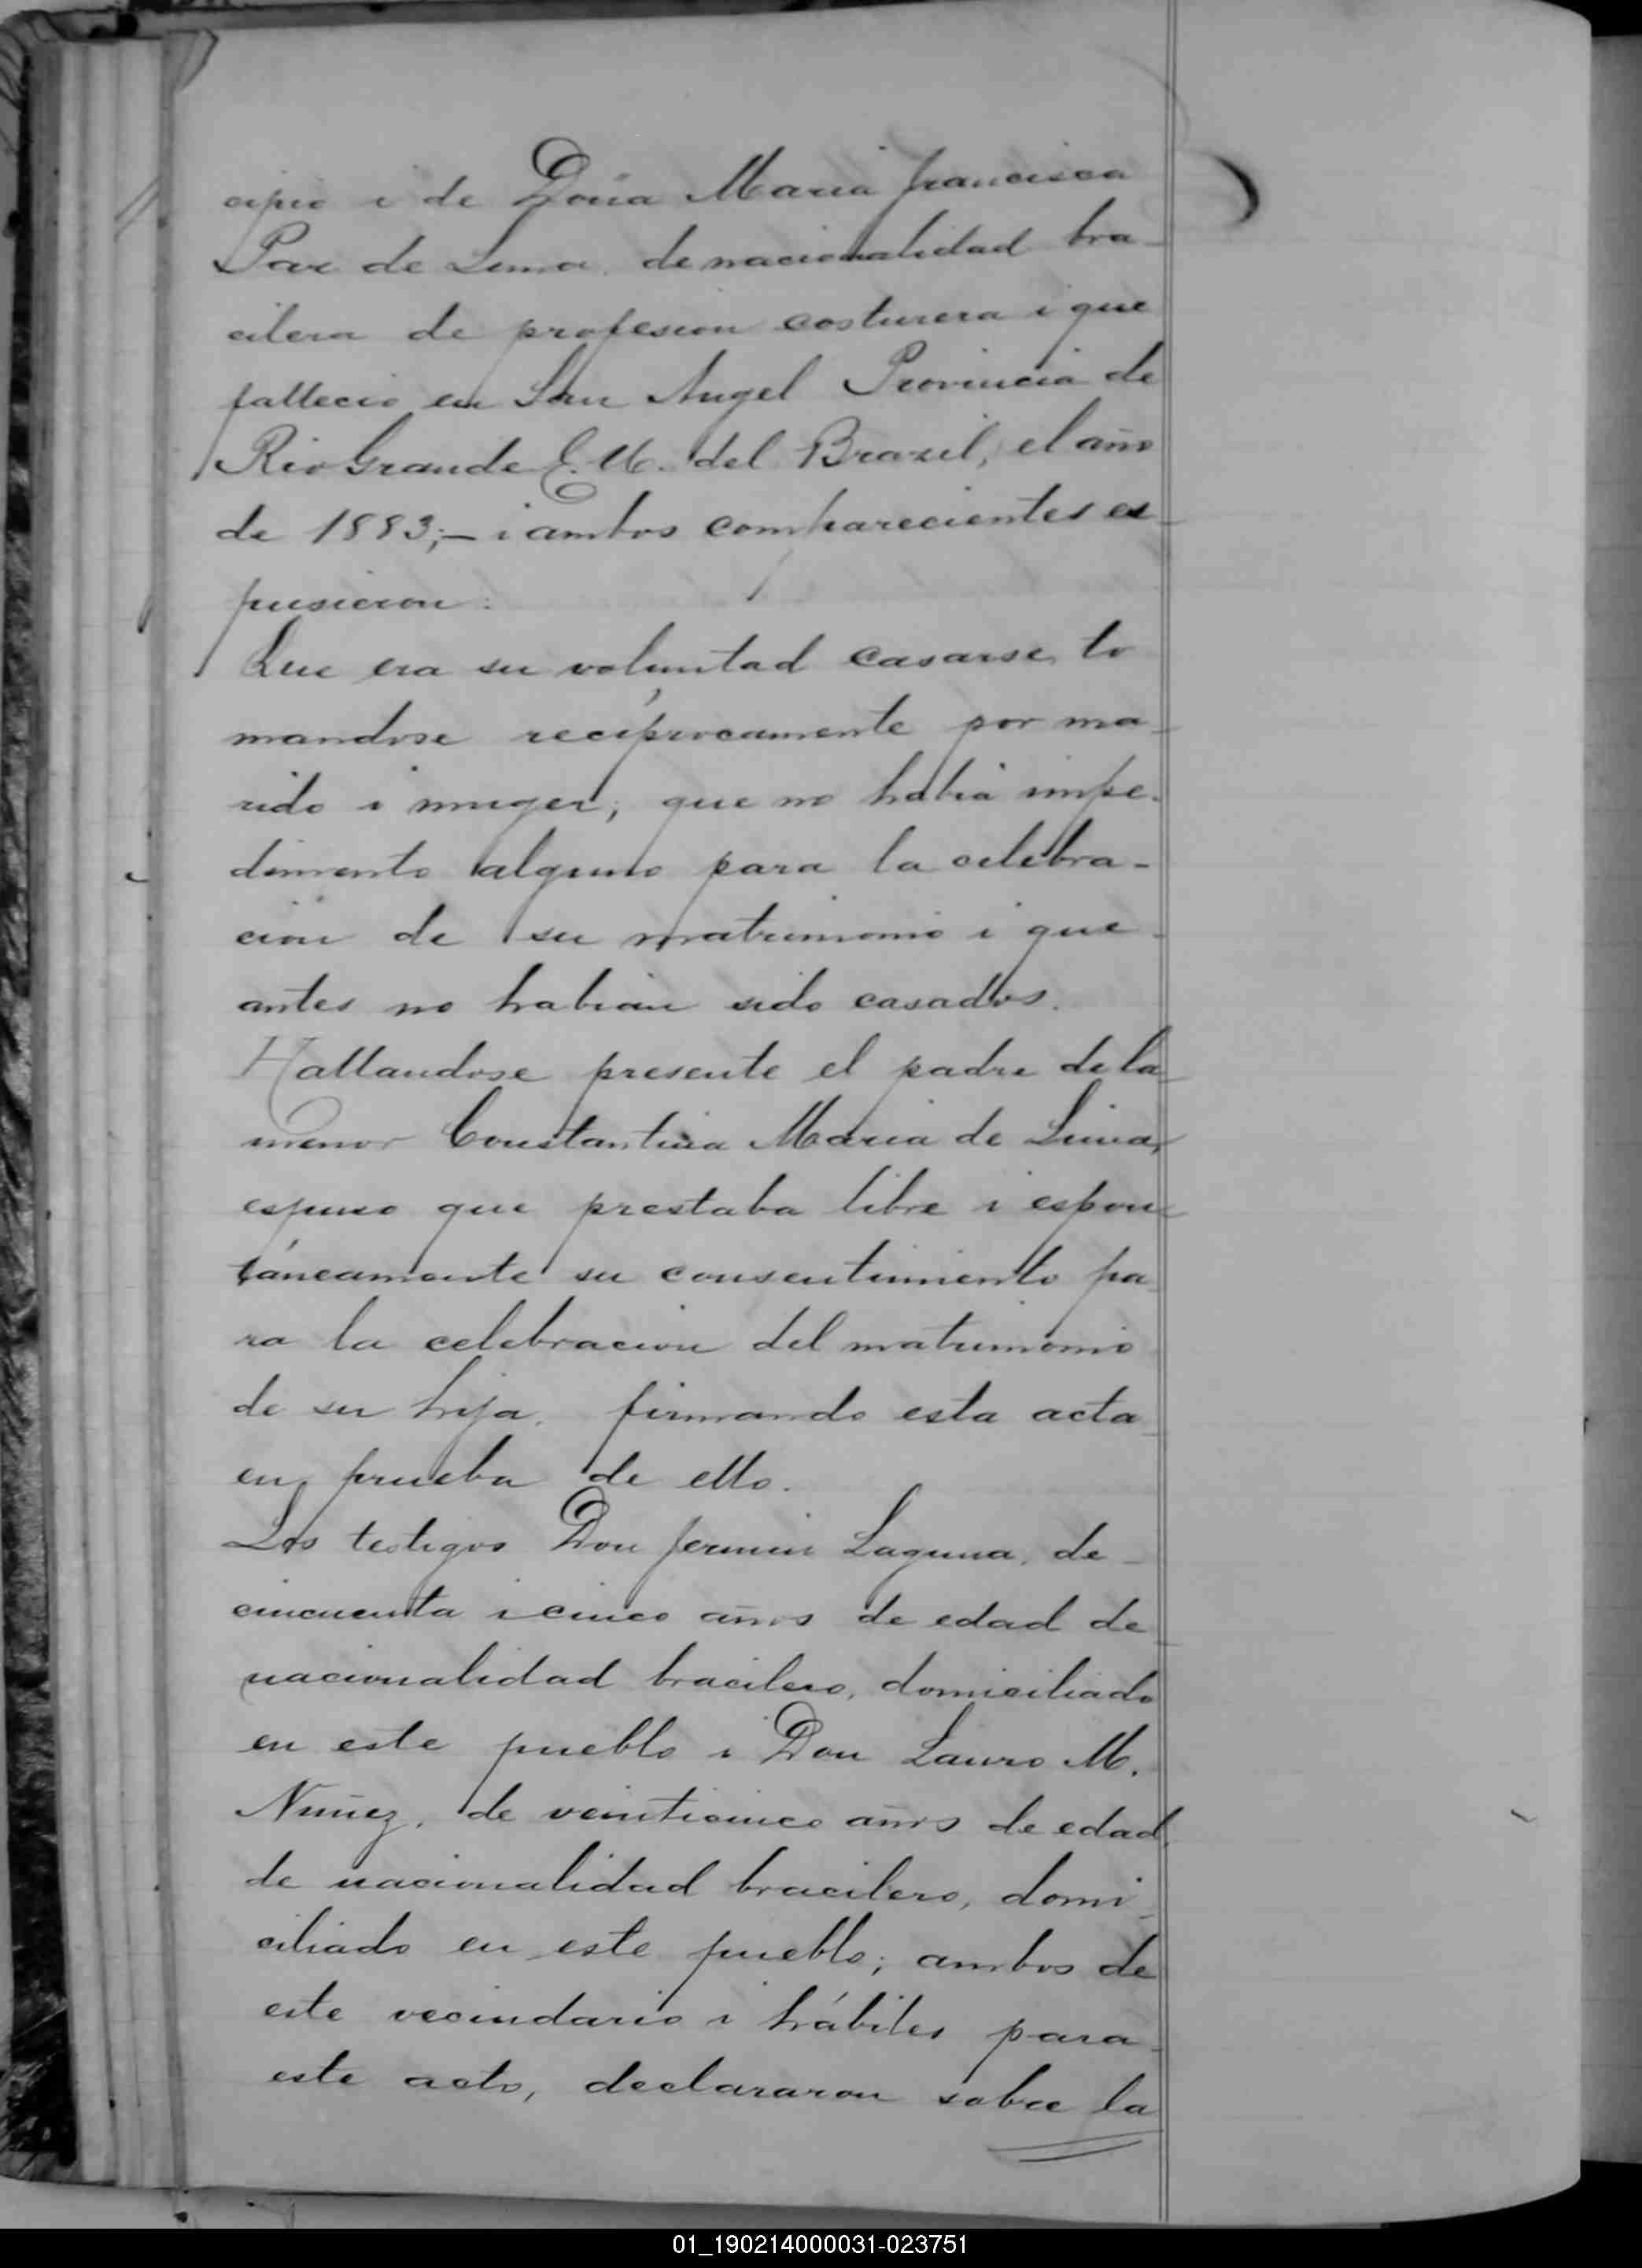 cipio i de Doña Maria Francisca
Paz de Lima, de nacionalidad bra-
cilera de profesion costurera i que
fallecio en San Angel Provincia de
Rio Grande E. U. del Brazil, el año
de 1883;- i ambos comparecientes es-
pusieron:
Que era su voluntad casarse, to
mandose recíprocamente por ma-
rido i muger; que no habia impe-
dimento alguno para la celebra-
cion de su matrimonio i que
antes no habian sido casados.
Hallandose presente el padre de la
menor Constantina Maria de Lima,
espuso que prestaba libre i espon-
táneamente su consentimiento pa
ra la celebracion del matrimonio
de su hija, firmando esta acta
en prueba de ello.
Los testigos Don Fermin Laguna, de-
cincuenta i cinco años de edad de
nacionalidad bracilero, domiciliado
en este pueblo i Don Lauro M.
Nuñez, de veinticinco años de edad,
de nacionalidad bracilero, domi-
ciliado en este pueblo; ambos de
este vecindario i hábiles para
este acto, declararon sobre la
01_190214000031-023751